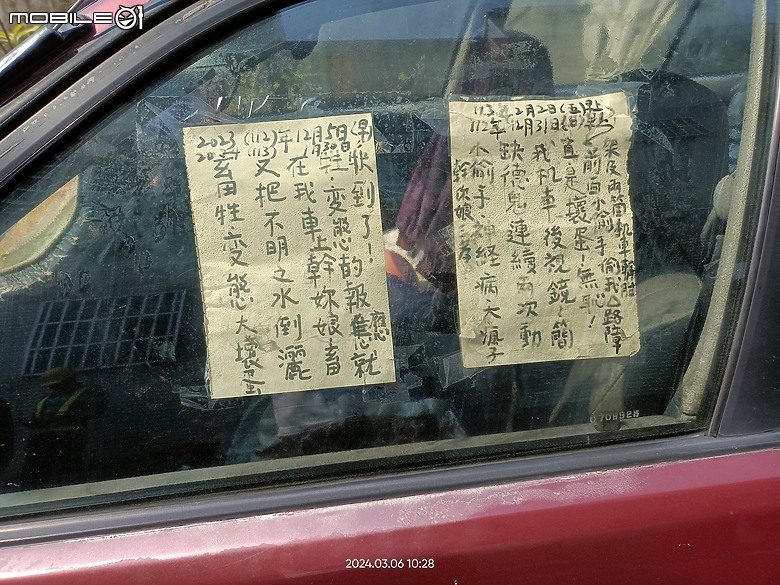 MOBILE01
2023 (112) 年 12月5日
畜牲变態大壞蛋
又把不明之水倒灑
在我車上幹妳娘畜
牲变態的報應就
快到了!
113年2月2日(五)
112年12月31日(日)
小偷手、神経病大瘋子
幹你娘
缺德鬼連續兩次動
我机車後視鏡、簡
直是壞蛋!無恥!
前面小偷手偷我△路障
及兩箇机車
0708928
2024.03.06 10:28